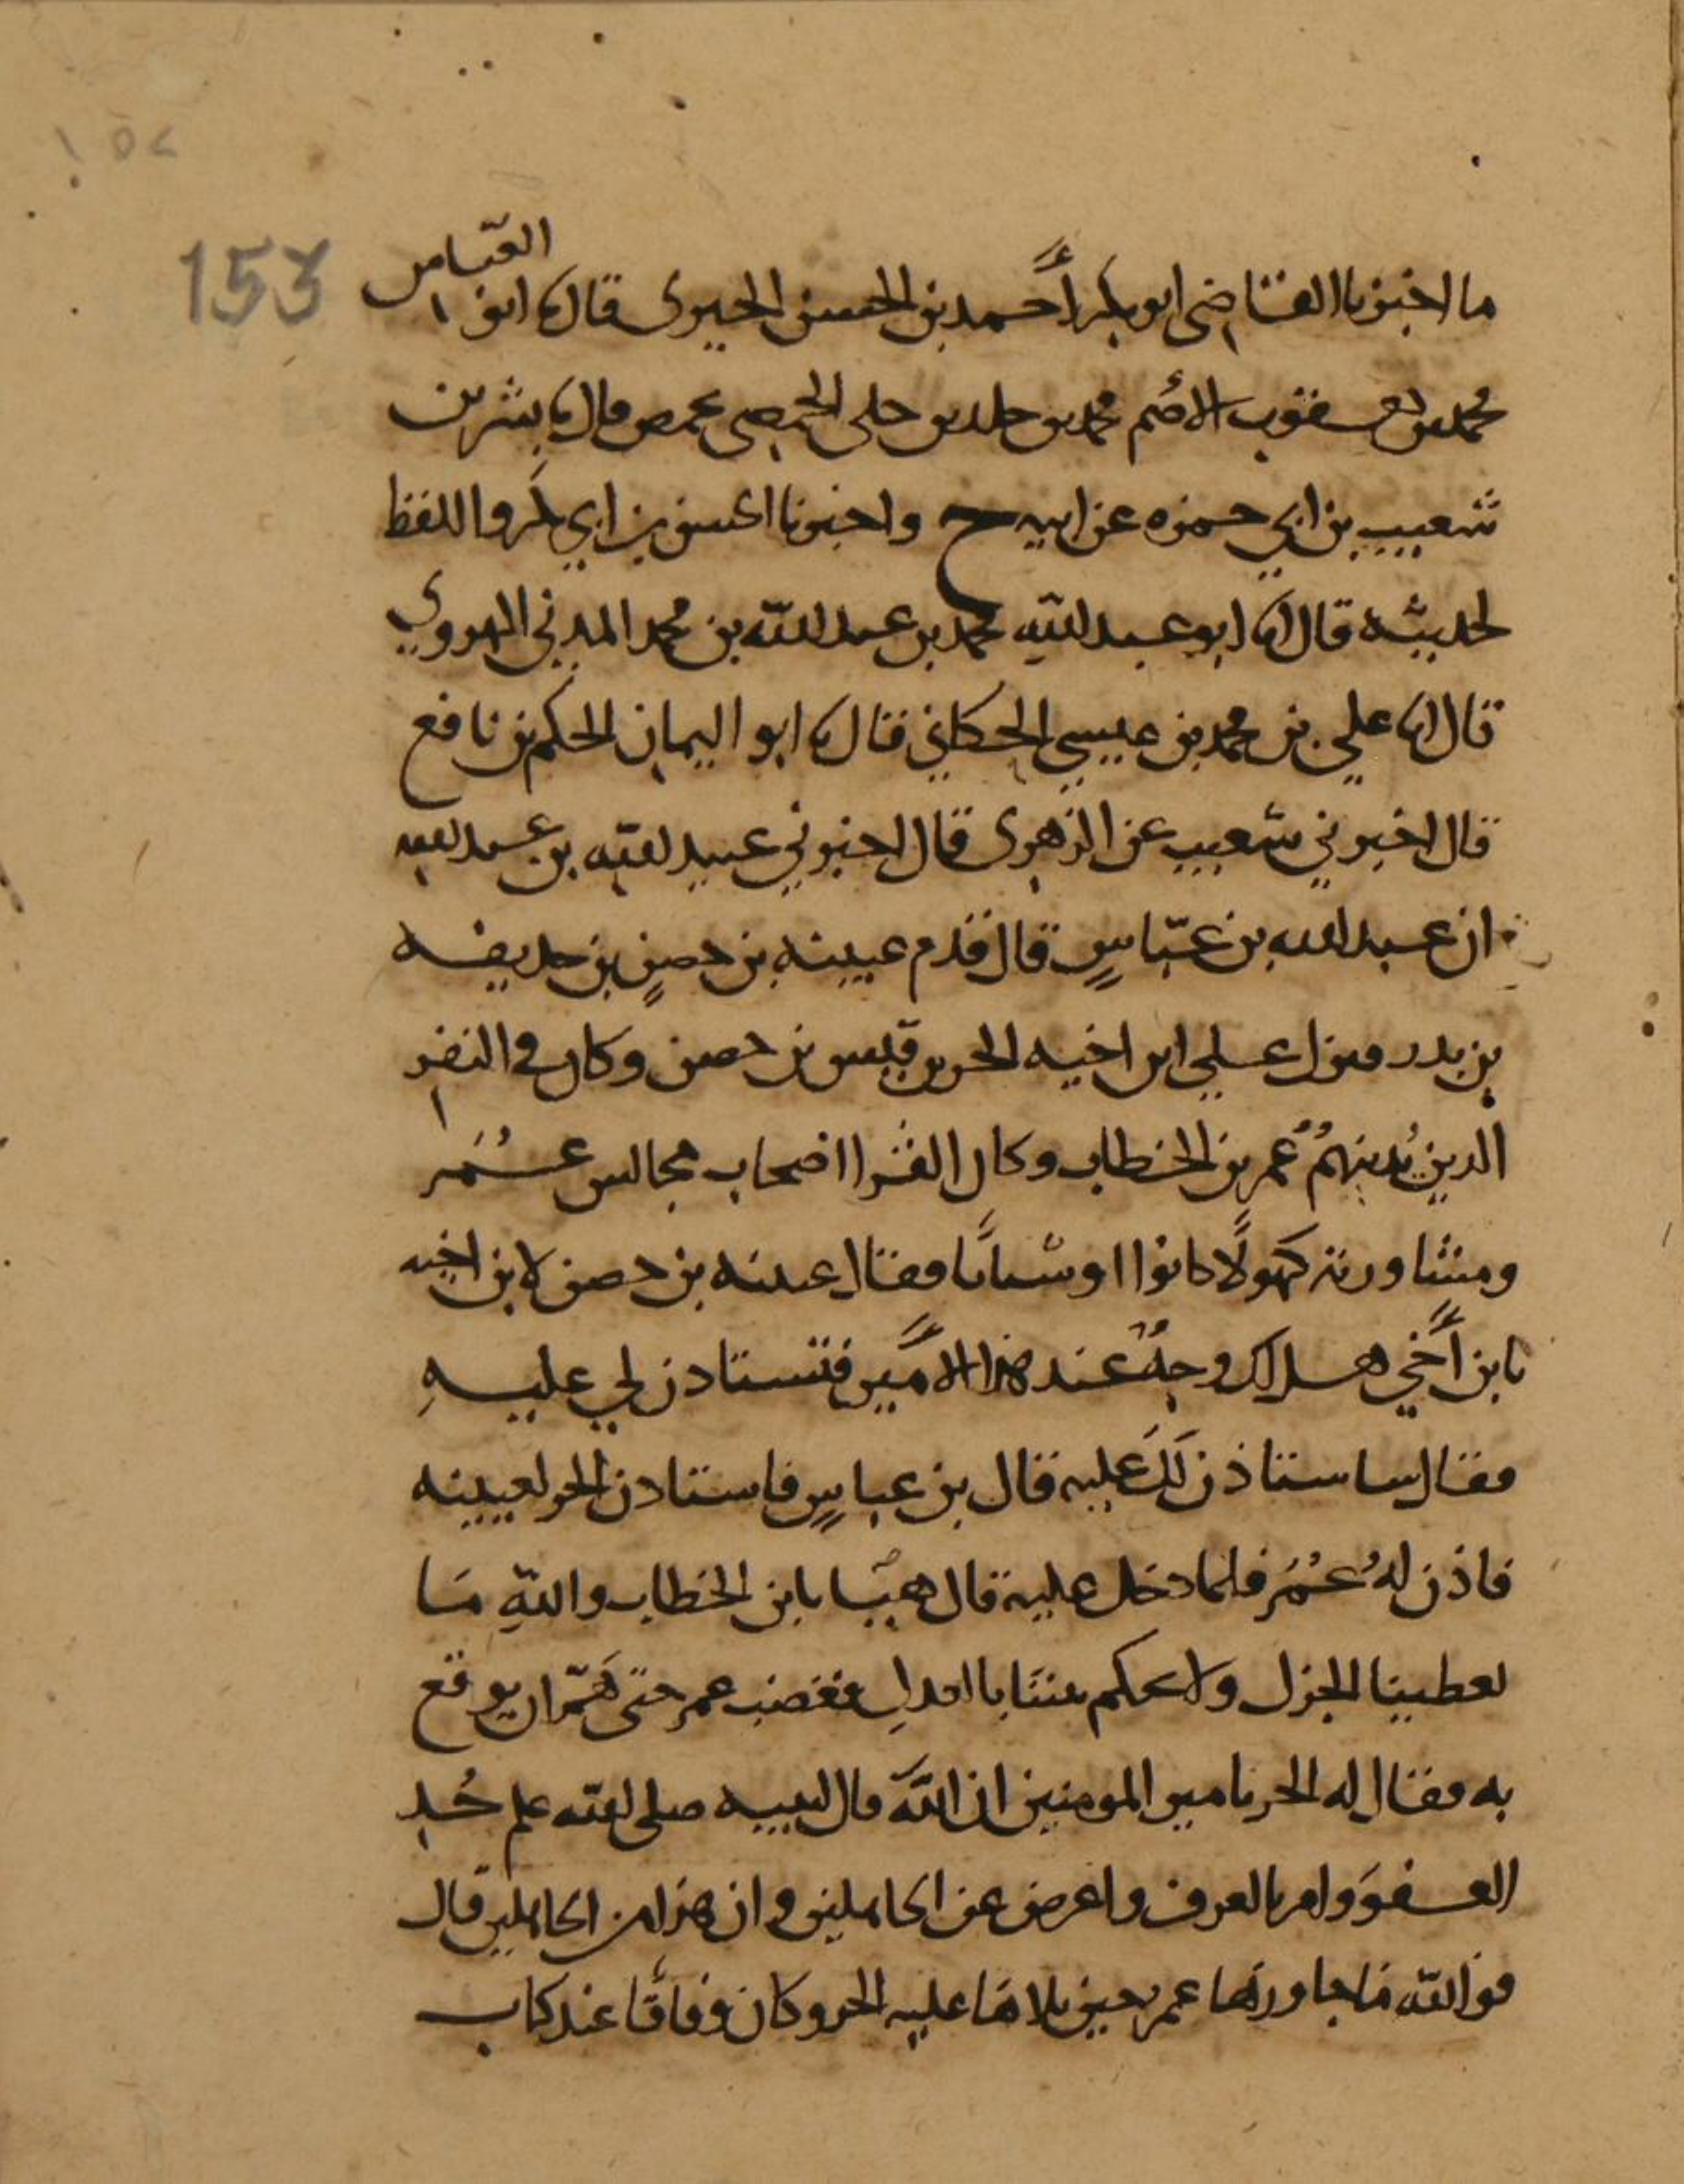 ١٥٢
153
العباس
ما اخبرنا القاضي ابو بكر أحمد بن الحسن الحيري قال نا ابو
محمد بن يعقوب الاصم محمد بن خلد بن خلي الحمصي بحمص قال نا بشر بن
شعيب بن ابي حمزه عن ابيه ح واخبرنا الحسن بن ابي بكر واللفظ
لحديثه قال انا ابو عبد الله محمد بن عبد الله بن محمد المدني الهروي
قال انا علي بن محمد بن عيسي الحكاني قال نا ابو اليمان الحكم بن نافع
قال اخبرني شعيب عن الزهري قال اخبرني عبيد الله بن عبد الله
ان عبد الله بن عبّاسٍ قال قدم عيينه بن حصنٍ بن حديفه
بن بدر فنزل علي ابن اخيه الحر بن قيس بن حصن وكان في النفر
الدين يُدنيهُم عُمر بن الخطاب وكان القرا اصحاب مجالس عُمَر
ومشاورته كهولًا كانوا او شبابًا فقال عيينه بن حصن لابن اخيه
يابن أخي هل لك وجهٌ عند هذا الامير فتستاذن لي عليهِ
فقال ساستاذن لَكَ عليه قال بن عباسٍ فاستادن الحر لعيينه
فاذن لهُ عُمَر فلما دخل عليه قال هيّا يابن الخطاب واللهِ مَا
تعطينا الجزل ولا تحكم بيننا بالعدلِ فغضب عمر حتى هَمّ ان يوقع
به فقال له الحر يامير المومنين ان اللَّهَ قال لنبيه صلى الله علم خُذِ
العفوَ وامر بالعرف واعرض عن الجاهلين وان هذا من الجاهلين قال
فوالله مَا جاوزها عمر حين تلاهَا عليه الحر وكان وقافًا عند كتاب